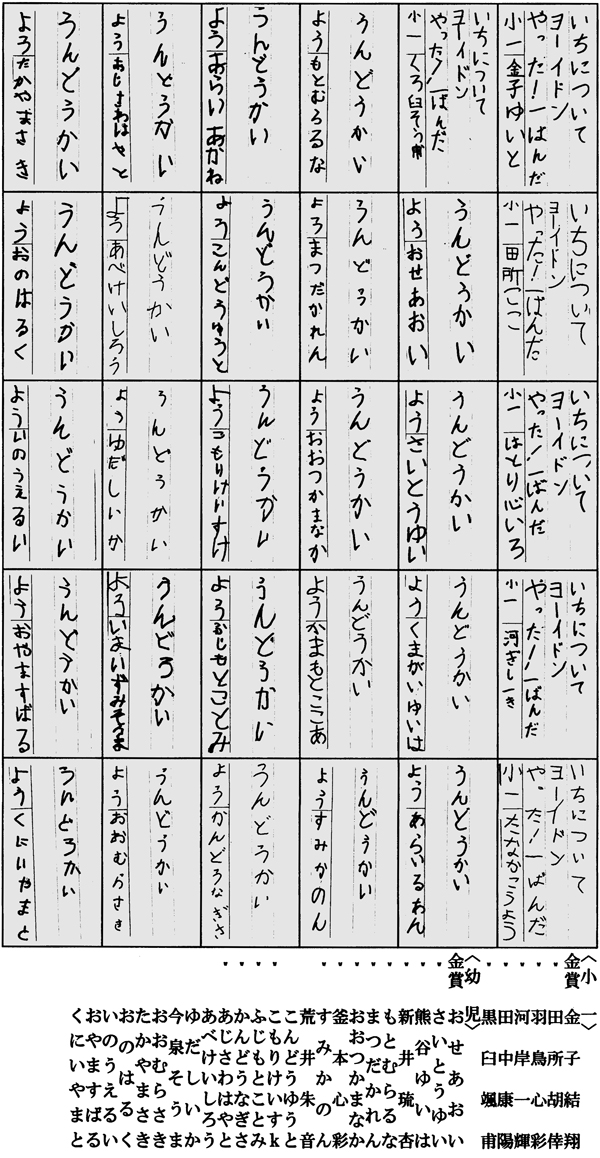 いちについて
ヨーイドン
やった!一ばんだ
小一 金子ゆいと
いちについて
ヨーイドン
やった!一ばんだ
小一 田所こっこ
いちについて
ヨーイドン
やった!一ばんだ
小一 はとり心いろ
いちについて
ヨーイドン
やった!一ばんだ
小一 河ぎし一き
いちについて
ヨーイドン
やった!一ばんだ
小一 たなかこうよう
いちについて
ヨーイドン
やった!一ばんだ
小一 くろ臼そう甫
うんどうかい
ようおせあおい
うんどうかい
ようさいとうゆい
うんどうかい
ようくまがいゆいは
うんどうかい
ようあらいるあん
うんどうかい
ようもとむらるな
うんどうかい
ようまつだかれん
うんどうかい
ようおおつかまなか
うんどうかい
ようかまもとここあ
うんどうかい
ようすみかのん
うんどうかい
ようあらいあかね
うんどうかい
ようこんどうゆうと
うんどうかい
ようこもりけいすけ
うんどうかい
ようふじもとことみ
うんどうかい
ようかんどうなぎさ
うんどうかい
ようあじさわはやと
うんどうかい
ようあべけいしろう
うんどうかい
ようゆだしいか
うんどうかい
よういまいずみそうま
うんどうかい
ようおおむらさき
うんどうかい
ようたかやまさき
うんどうかい
ようおのはるく
うんどうかい
よういのうえるい
うんどうかい
ようおやますばる
うんどうかい
ようくにいやまと
〈小一〉
金賞 金子結翔
〃 田所胡倖
〃 羽鳥心彩
〃 河岸一輝
〃 田中康陽
〃 黒臼颯甫
〈幼児〉
金賞 おせあおい
〃 さいとうゆい
〃 熊谷ゆいは
〃 新井琉杏
〃 もとむらるな
〃 まつだかれん
〃 おおつかまなか
〃 釜本心彩
〃 すみかのん
〃 荒井朱音
〃 こんどうゆうと
〃 こもりけいすk
〃 ふじもとことみ
かんどうなぎさ
あじさわはやと
あべけいしろう
ゆだしいか
今泉そうま
おおむらさき
たかやまさき
おのはるく
いのうえるい
おやますばる
くにいやまと